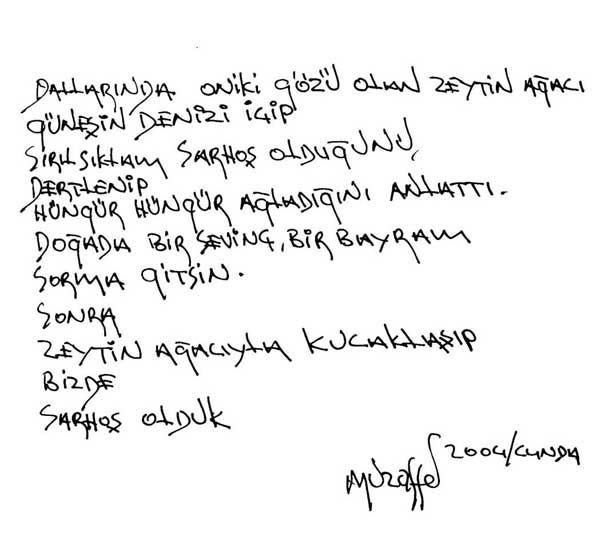 DALLARINDA ONİKİ GÖZÜ OLAN ZEYTİN AĞACI
GÜNEŞİN DENİZİ İÇİP
SIRILSIKLAM SARHOŞ OLDUĞUNU,
DERTLENİP
HÜNGÜR HÜNGÜR AĞLADIĞINI ANLATTI.
DOĞADA BİR SEVİNÇ, BİR BAYRAM
SORMA GİTSİN.
SONRA
ZEYTİN AĞACIYLA KUCAKLAŞIP
BİZDE
SARHOŞ OLDUK
Muzaffer 2004/CUNDA